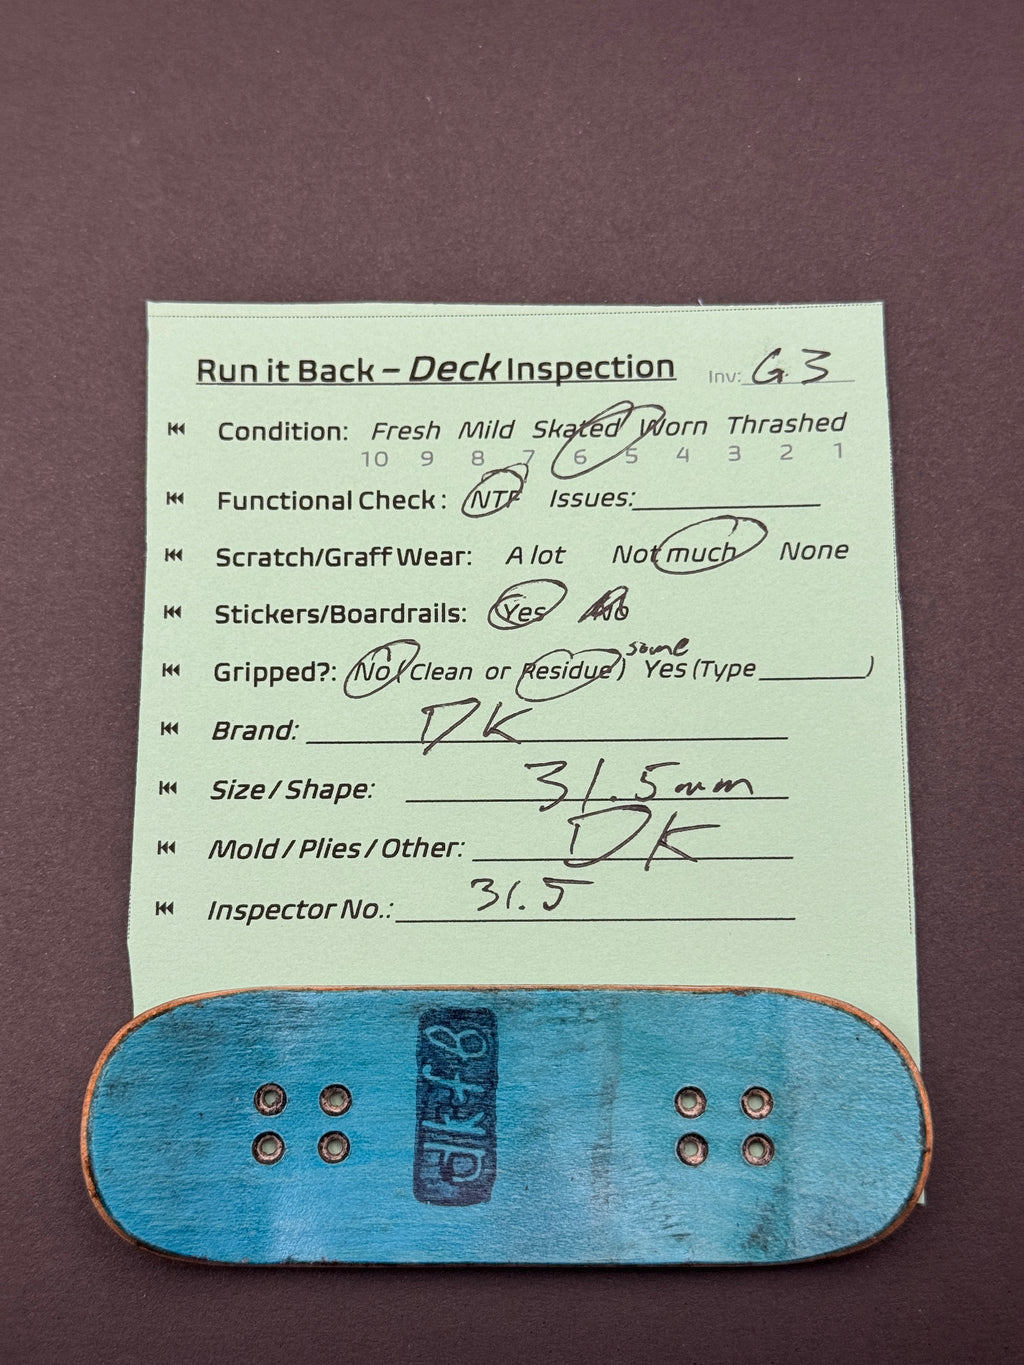 Run it Back – Deck Inspection Inv: G3
Condition: Fresh Mild Skated Worn Thrashed
10 9 8 7 6 5 4 3 2 1
Functional Check: NTF Issues:
Scratch/Graff Wear: A lot Not much None
Stickers/Boardrails: Yes No
some
Gripped?: No (Clean or Residue) Yes (Type )
Brand: DK
Size / Shape: 31.5mm
Mold / Plies / Other: DK
Inspector No.: 31.5
dkfb